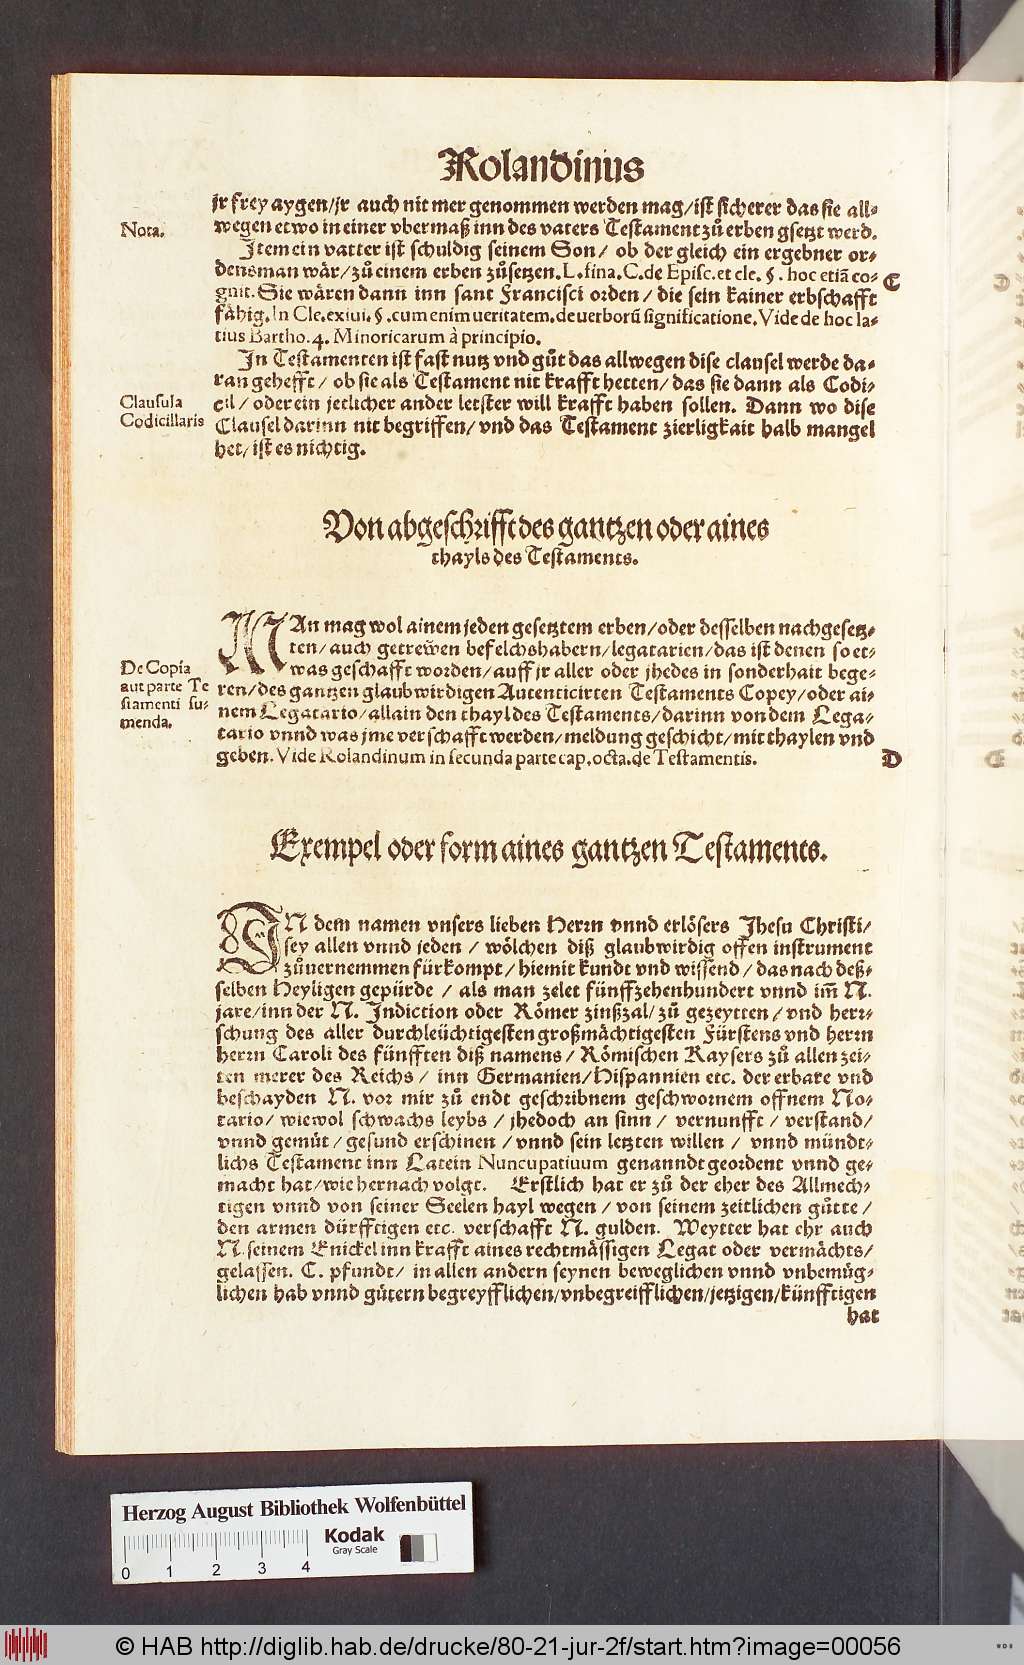 Rolandinus
jr frey aygen/jr auch nit mer genommen werden mag/ist sicherer das sie all⸗
Nota.
wegen etwo in einer vbermaß inn des vaters Testament zů erben gsetzt werd.
Item ein vatter ist schuldig seinem Son/ ob der gleich ein ergebner or⸗
densman wår/zů einem erben zůsetzen. L. fina. C. de Episc. et cle. §. hoc etiā co⸗
C
gnit. Sie wåren dann inn sant Francisci orden/ die sein kainer erbschafft
fåhig. In Cle. exiui. §. cum enim ueritatem. de uerborū significatione. Vide de hoc la⸗
tius Bartho. 4. Minoricarum à principio.
In Testamenten ist fast nutz vnd gůt das allwegen dise clausel werde da⸗
ran gehefft/ ob sie als Testament nit krafft hetten/das sie dann als Codi⸗
Clausula
Codicillaris
cil/ oder ein jetlicher ander letster will krafft haben sollen. Dann wo dise
Clausel darinn nit begriffen/vnd das Testament zierligkait halb mangel
het/ist es nichtig.
Von abgeschrifft des gantzen oder aines
thayls des Testaments.
MAn mag wol ainem jeden gesetztem erben/oder desselben nachgesetz⸗
ten/auch getrewen befelchshabern/legatarien/das ist denen so et⸗
De Copia
aut parte Te
stamenti su⸗
menda.
was geschafft worden/auff jr aller oder jhedes in sonderhait bege⸗
ren/des gantzen glaubwirdigen Autenticirten Testaments Copey/oder ai⸗
nem Legatario/allain den thayl des Testaments/darinn von dem Lega⸗
tario vnnd was jme verschafft werden/meldung geschicht/mitthaylen vnd
geben. Vide Rolandinum in secunda parte cap. octa. de Testamentis.
D
Exempel oder form aines gantzen Testaments.
IN dem namen vnsers lieben Herrn vnnd erlösers Jhesu Christi/
sey allen vnnd jeden / wölchen diß glaubwirdig offen instrument
zůuernemmen fürkompt/hiemit kundt vnd wissend/das nach deß⸗
selben Heyligen gepürde / als man zelet fünffzehenhundert vnnd im̄ N.
jare/inn der N. Indiction oder Römer zinßzal/zů gezeytten/vnd herr⸗
schung des aller durchleüchtigesten großmåchtigesten Fürstens vnd herrn
herrn Caroli des fünfften diß namens/Römischen Kaysers zů allen zei⸗
ten merer des Reichs/ inn Germanien/Hispannien etc. der erbare vnd
beschayden N. vor mir zů endt geschribnem geschwornem offnem No⸗
tario/ wiewol schwachs leybs / jhedoch an sinn / vernunfft / verstand/
vnnd gemüt/gesund erschinen / vnnd sein letzten willen / vnnd mündt⸗
lichs Testament inn Latein Nuncupatiuum genanndt geordent vnnd ge⸗
macht hat/wie hernach volgt. Erstlich hat er zů der eher des Allmech⸗
tigen vnnd von seiner Seelen hayl wegen/von seinem zeitlichen gůtte/
den armen dürfftigen etc. verschafft N. gulden. Weytter hat ehr auch
N. seinem Enickel inn krafft aines rechtmåssigen Legat oder vermåchts/
gelassen. C. pfundt/ in allen andern seynen beweglichen vnnd vnbemüg⸗
lichen hab vnnd gütern begreyfflichen/vnbegreifflichen/jetzigen/künfftigen
hat
Herzog August Bibliothek Wolfenbüttel
Kodak
Gray Scale
0 1 2 3 4
© HAB http://diglib.hab.de/drucke/80-21-jur-2f/start.htm?image=00056